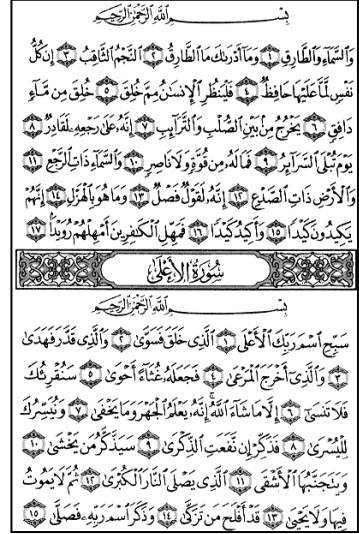 بِسْمِ اللَّهِ الرَّحْمَٰنِ الرَّحِيمِ
وَالسَّمَاءِ وَالطَّارِقِ ١ وَمَا أَدْرَىٰكَ مَا الطَّارِقُ ٢ النَّجْمُ الثَّاقِبُ ٣ إِن كُلُّ
نَفْسٍ لَّمَّا عَلَيْهَا حَافِظٌ ٤ فَلْيَنظُرِ الْإِنسَٰنُ مِمَّ خُلِقَ ٥ خُلِقَ مِن مَّاءٍ
دَافِقٍ ٦ يَخْرُجُ مِن بَيْنِ الصُّلْبِ وَالتَّرَائِبِ ٧ إِنَّهُ عَلَىٰ رَجْعِهِ لَقَادِرٌ ٨
يَوْمَ تُبْلَى السَّرَائِرُ ٩ فَمَا لَهُ مِن قُوَّةٍ وَلَا نَاصِرٍ ١٠ وَالسَّمَاءِ ذَاتِ الرَّجْعِ ١١
وَالْأَرْضِ ذَاتِ الصَّدْعِ ١٢ إِنَّهُ لَقَوْلٌ فَصْلٌ ١٣ وَمَا هُوَ بِالْهَزْلِ ١٤ إِنَّهُمْ
يَكِيدُونَ كَيْدًا ١٥ وَأَكِيدُ كَيْدًا ١٦ فَمَهِّلِ الْكَٰفِرِينَ أَمْهِلْهُمْ رُوَيْدًا ١٧
سُورَةُ الْأَعْلَىٰ
بِسْمِ اللَّهِ الرَّحْمَٰنِ الرَّحِيمِ
سَبِّحِ اسْمَ رَبِّكَ الْأَعْلَى ١ الَّذِي خَلَقَ فَسَوَّىٰ ٢ وَالَّذِي قَدَّرَ فَهَدَىٰ
٣ وَالَّذِي أَخْرَجَ الْمَرْعَىٰ ٤ فَجَعَلَهُ غُثَاءً أَحْوَىٰ ٥ سَنُقْرِئُكَ
فَلَا تَنسَىٰ ٦ إِلَّا مَا شَاءَ اللَّهُ إِنَّهُ يَعْلَمُ الْجَهْرَ وَمَا يَخْفَىٰ ٧ وَنُيَسِّرُكَ
لِلْيُسْرَىٰ ٨ فَذَكِّرْ إِن نَّفَعَتِ الذِّكْرَىٰ ٩ سَيَذَّكَّرُ مَن يَخْشَىٰ ١٠
وَيَتَجَنَّبُهَا الْأَشْقَى ١١ الَّذِي يَصْلَى النَّارَ الْكُبْرَىٰ ١٢ ثُمَّ لَا يَمُوتُ
فِيهَا وَلَا يَحْيَىٰ ١٣ قَدْ أَفْلَحَ مَن تَزَكَّىٰ ١٤ وَذَكَرَ اسْمَ رَبِّهِ فَصَلَّىٰ ١٥